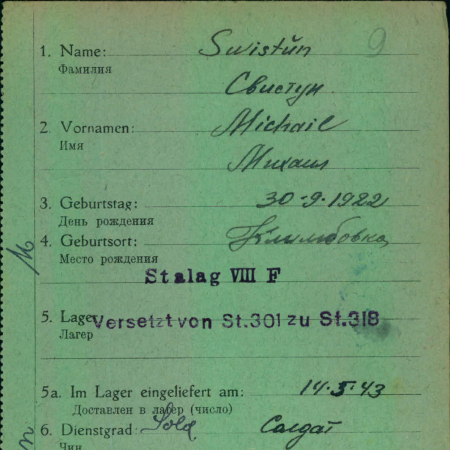 9
1. Name: Swistŭn
Фамилия
Свистун
2. Vornamen: Michail
Имя
Михаил
3. Geburtstag: 30-9-1922
День рождения
4. Geburtsort: Климовка
Место рождения
Stalag VIII F
5. Lager Versetzt von St.301 zu St.318
Лагер
5a. Im Lager eingeliefert am: 14.5.43
Доставлен в лагер (число)
6. Dienstgrad: Sold Солдат
Чин